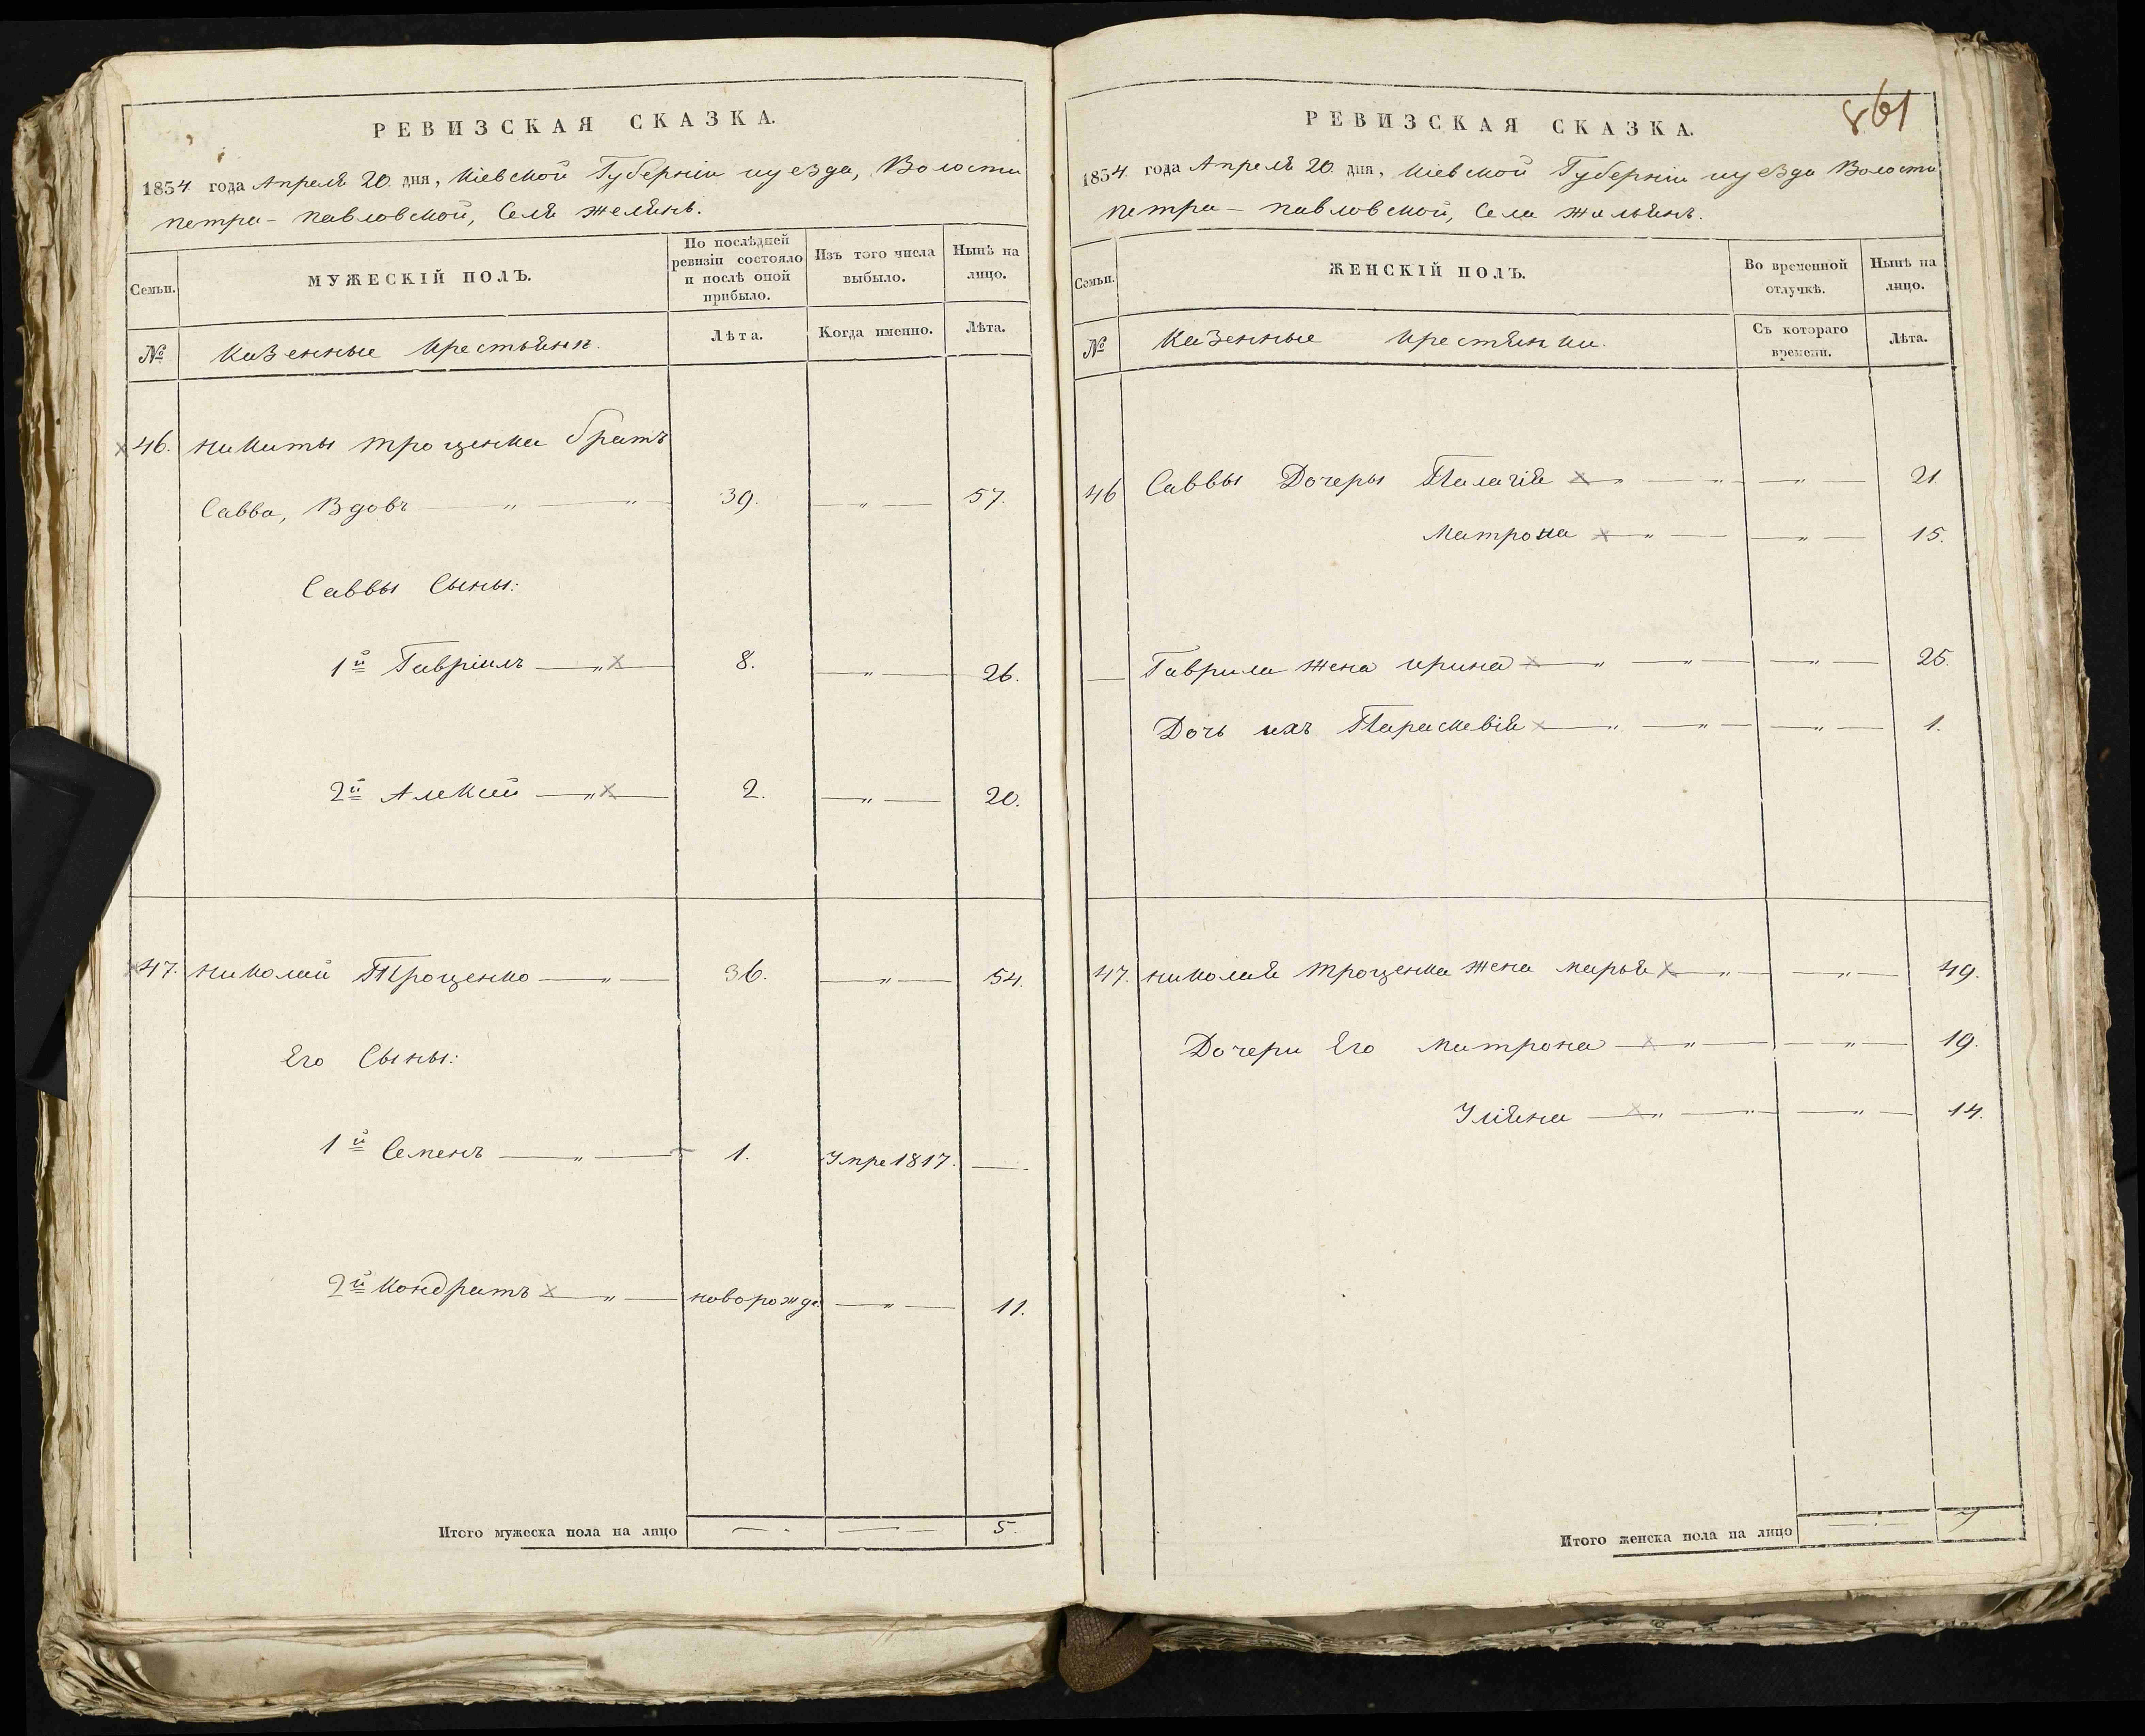 РЕВИЗСКАЯ СКАЗКА.
1834 года Апреля 20 дня, Кіевской Губерніи и уезда, Волости
петра-павловской, Селя желянь.
Семьи. МУЖЕСКІЙ ПОЛЪ. По послѣдней ревизіи состояло и послѣ оной прибыло. Изъ того числа выбыло. Нынѣ на лицо.
№ Казенные крестьяни. Лѣта. Когда именно. Лѣта.
46. никиты троценка братъ
Савва, Вдовъ — „ — 39. — „ — 57.
Саввы Сыны:
1й Гавріилъ — „ — 8. — „ — 26.
2й Алексій — „ — 2. — „ — 20.
47. николай Троценко — „ — 36. — „ — 54.
Его Сыны:
1й Семенъ — „ — 1. Умре 1817. —
2й Кондратъ — „ — новорожде. — „ — 11.
Итого мужеска пола на лицо — — 5.
861
РЕВИЗСКАЯ СКАЗКА.
1834 года Апреля 20 дня, Кіевской Губерніи и уезда Волости
петра-павловской, Села жильянь.
Семьи. ЖЕНСКІЙ ПОЛЪ. Во временной отлучкѣ. Нынѣ на лицо.
№ Казенные крестянки. Съ котораго времени. Лѣта.
46 Саввы Дочеры Палагія — „ — „ — „ — 21
Матрона — „ — „ — 15.
— Гаврила жена ирина — „ — „ — „ — 25.
Дочь ихъ Параскевія — „ — „ — „ — 1.
47. николая троценка жена марья — „ — „ — 49.
Дочери Его матрона — „ — „ — 19.
Уліяна — „ — „ — „ — 14.
Итого женска пола на лицо — 7